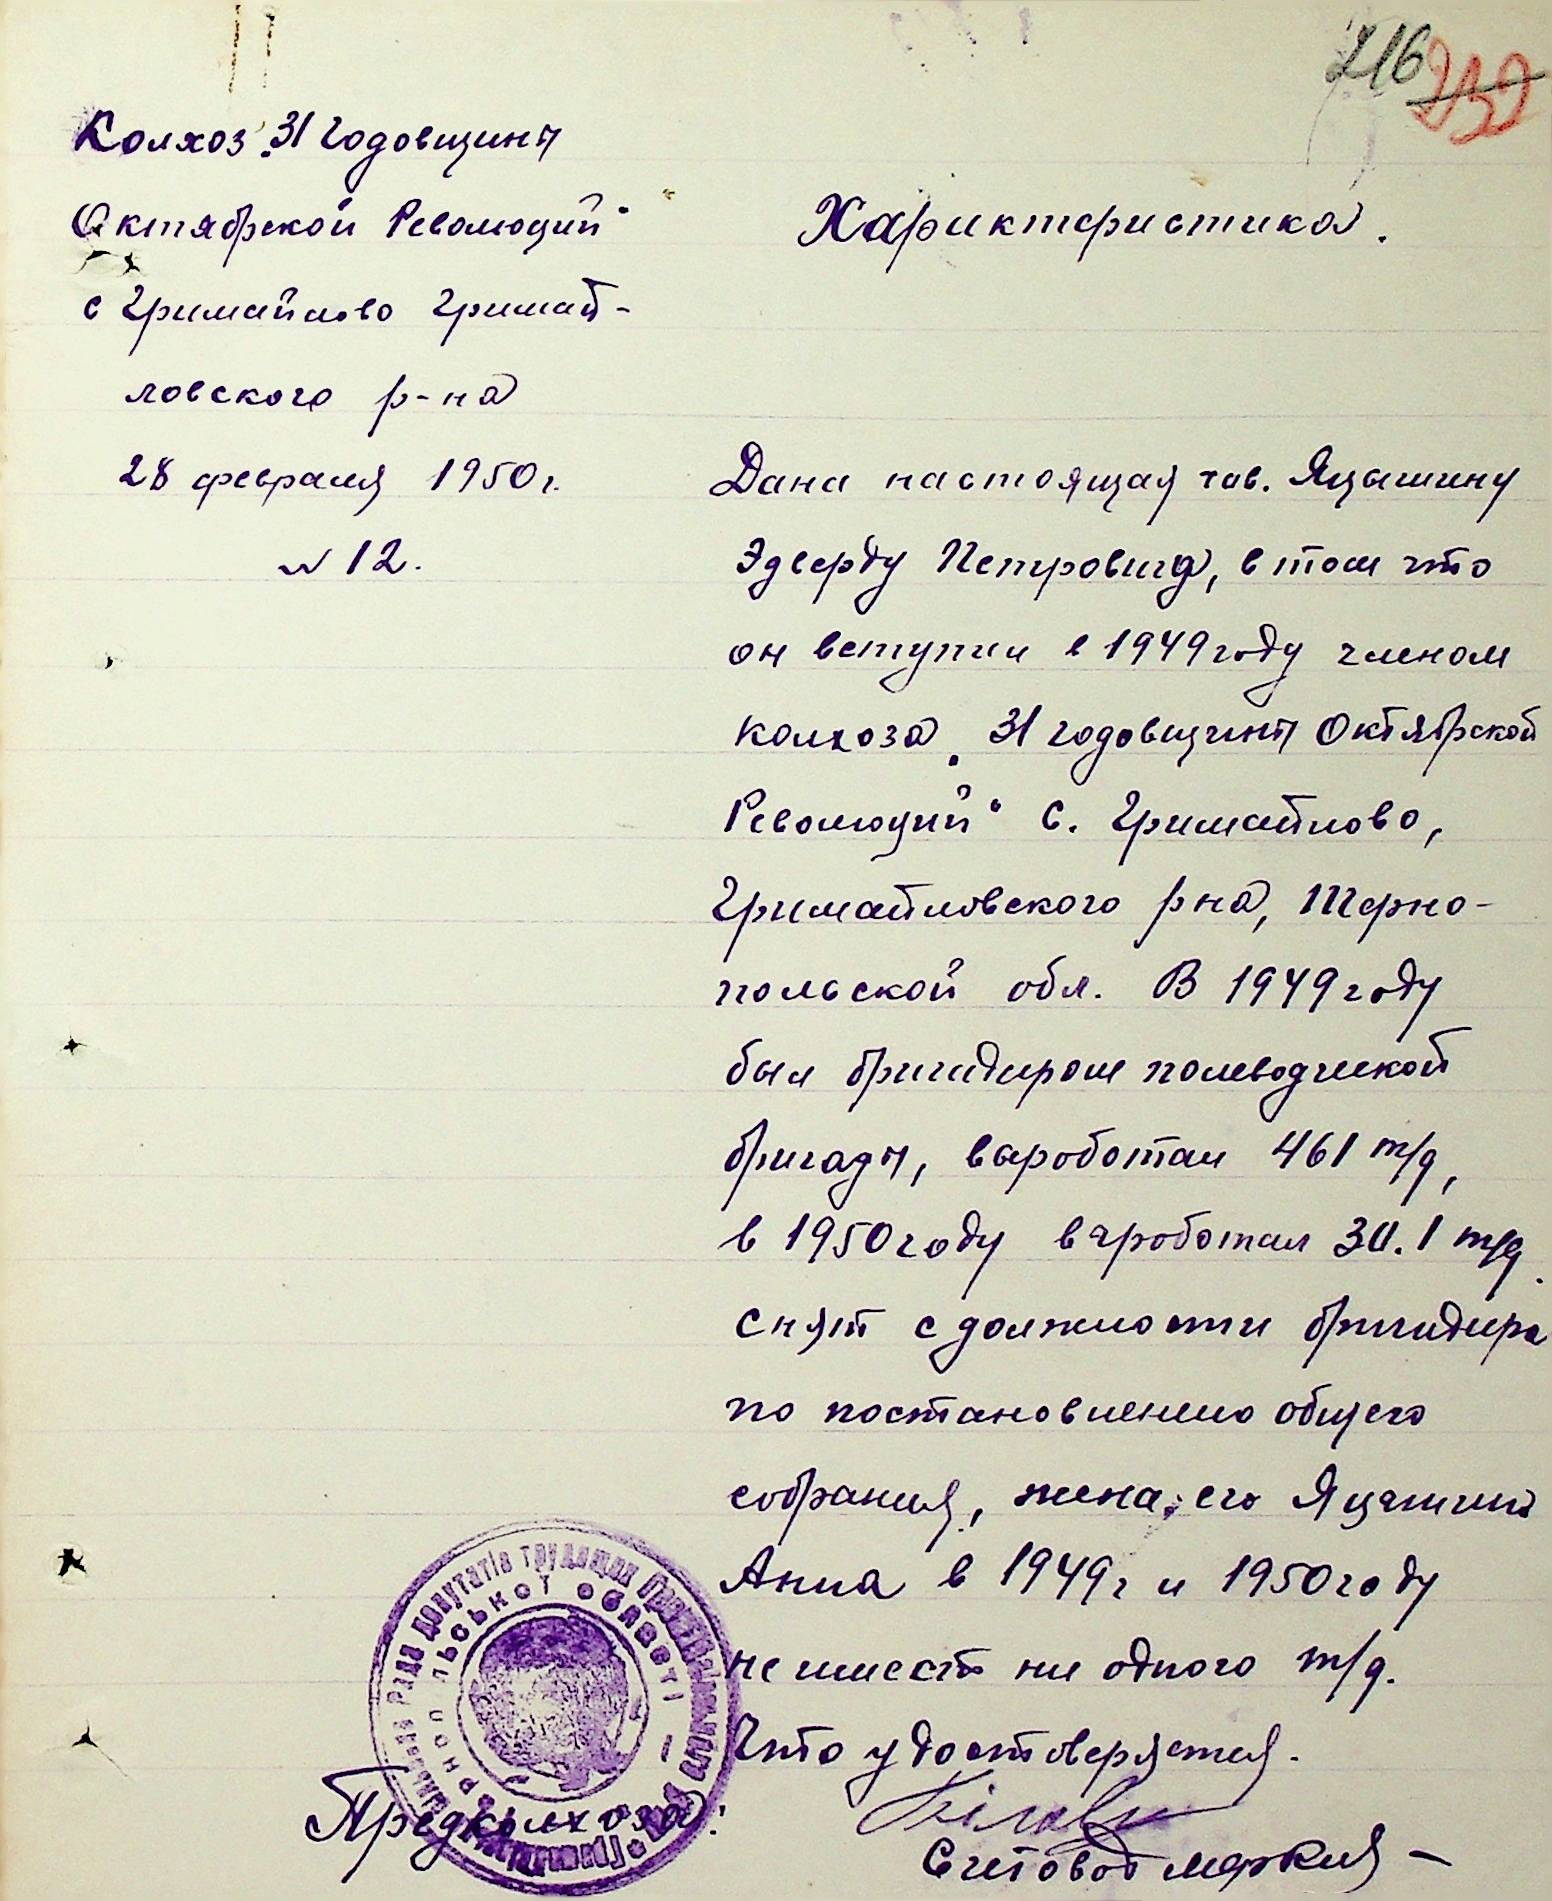 216 232
Колхоз „31 годовщины
Октябрской Революций“
с Гримайлово Гримай-
ловского р-на
28 февраля 1950 г.
№ 12.
Характеристика.
Дана настоящая тов. Яцышину
Эдверду Петровича, в том что
он вступил в 1949 году членом
колхоза „31 годовщины Октябрской
Революций“ с. Гримайлово,
Гримайловского рна, Терно-
польской обл. В 1949 году
был бригадиром полеводческой
бригады, выроботал 461 т/д,
в 1950 году выроботал 30.1 т/д.
Снят с должности бригадира
по постановлению общего
собрания, жена его Яцышин
Анна в 1949 г и 1950 году
не имеет ни одного т/д.
Что удостоверяется.
Предколхоза:
Счетовод
Рада депутатів трудящих Гримайлівського
Тернопільської області